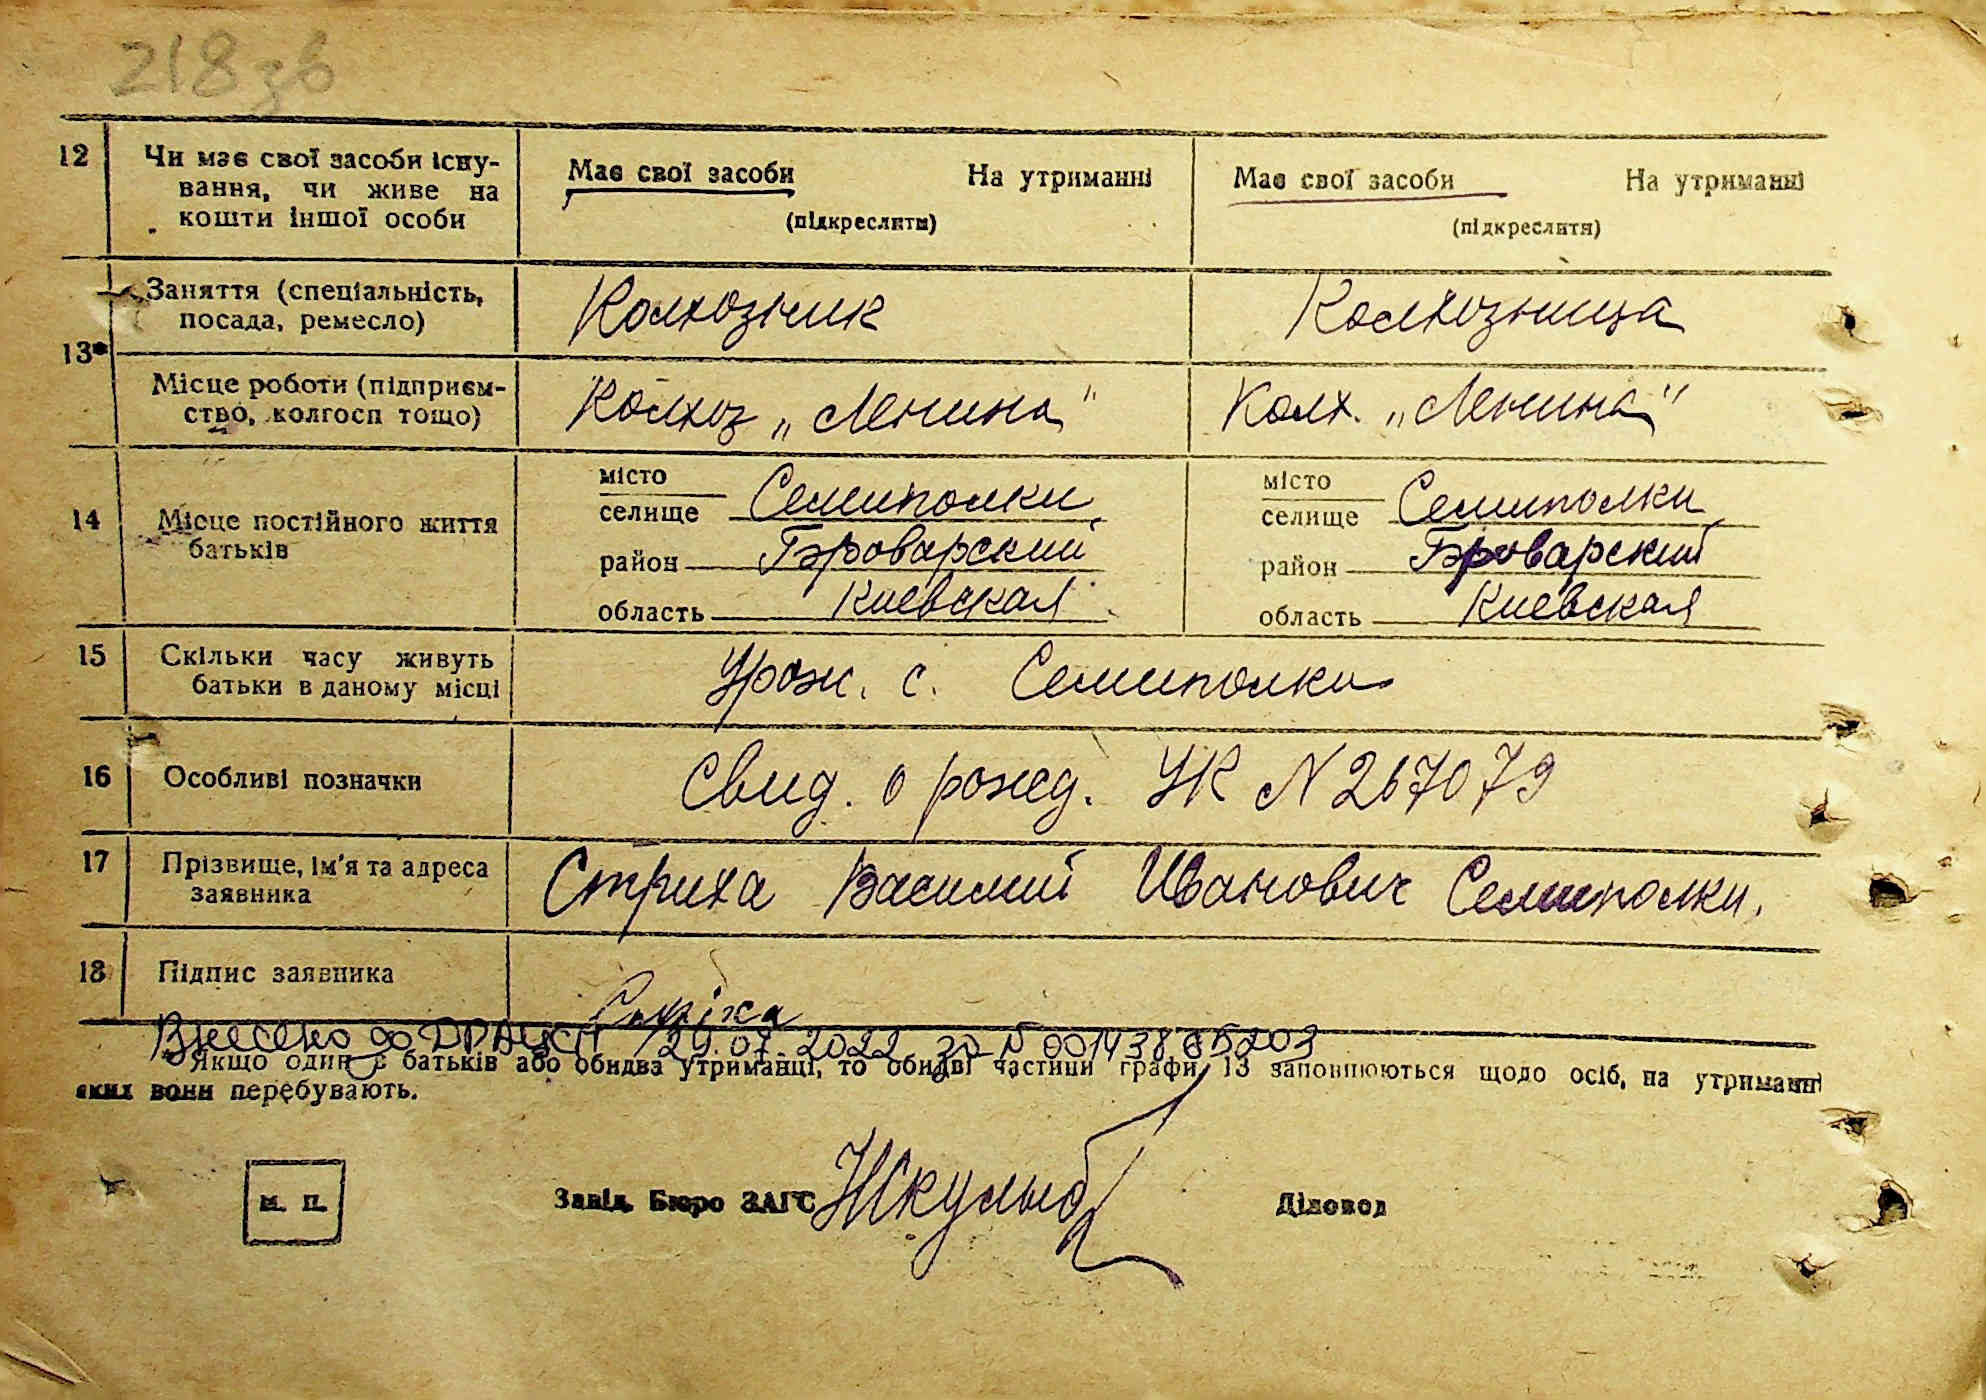 218зв
12 Чи має свої засоби існу- Має свої засоби На утриманні Має свої засоби На утриманні
вання, чи живе на
кошти іншої особи (підкреслити) (підкреслити)
Заняття (спеціальність, Колхозник Колхозница
посада, ремесло)
13*
Місце роботи (підприєм- Колхоз „Ленина" Колх. „Ленина"
ство, колгосп тощо)
місто місто
селище Семиполки селище Семиполки
14 Місце постійного життя
батьків район Броварский район Броварский
область Киевская область Киевская
15 Скільки часу живуть Урож. с. Семиполки
батьки в даному місці
16 Особливі позначки Свид. о рожд. УК N 267079
17 Прізвище, ім'я та адреса Стриха Василий Иванович Семиполки.
заявника
18 Підпис заявника Стріха
Внесено до ДРАЦСГ 29.07.2022 за № 00143865203
* Якщо один з батьків або обидва утриманці, то обидві частини графи 13 заповнюються щодо осіб, на утриманні
яких вони перебувають.
М. П. Завід. Бюро ЗАГС Діловод